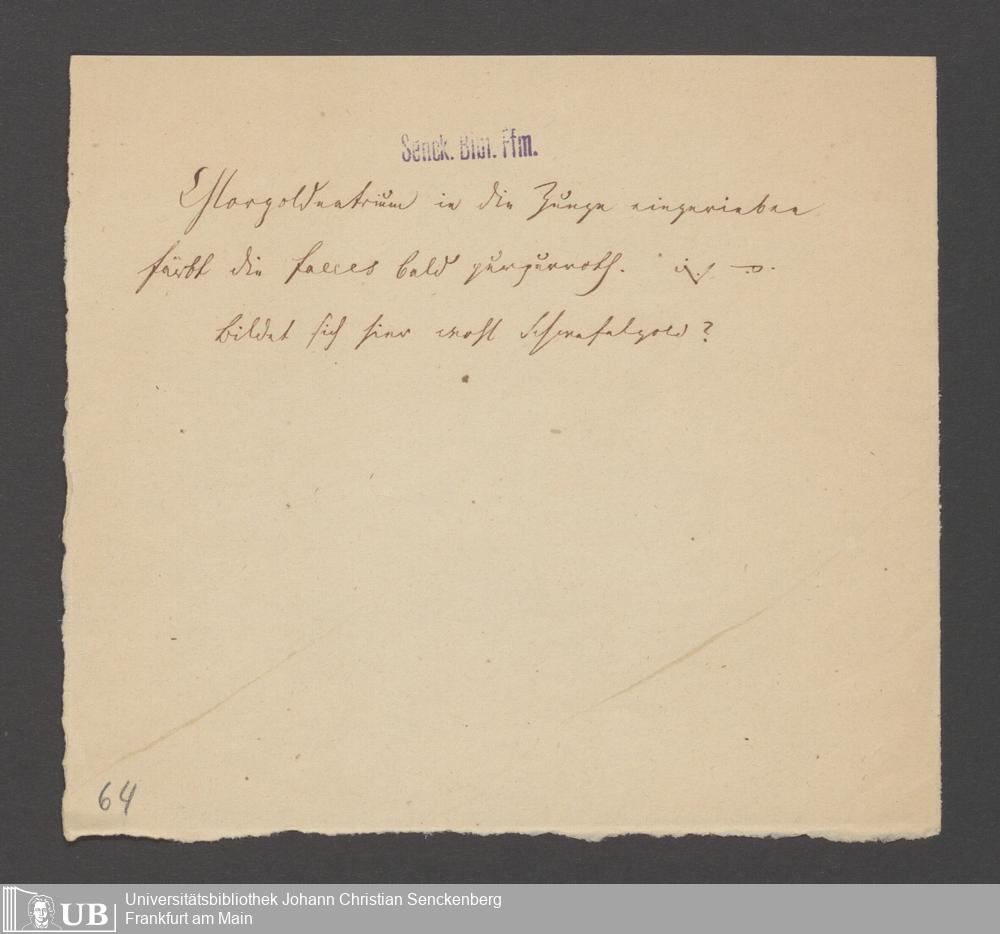 Senck. Bibl. Ffm.
Chlorgoldnatrium in die Zunge eingerieben
färbt die faeces bald purpurroth.
Bildet sich hier wohl Schwefelgold?
64
UB
Universitätsbibliothek Johann Christian Senckenberg
Frankfurt am Main